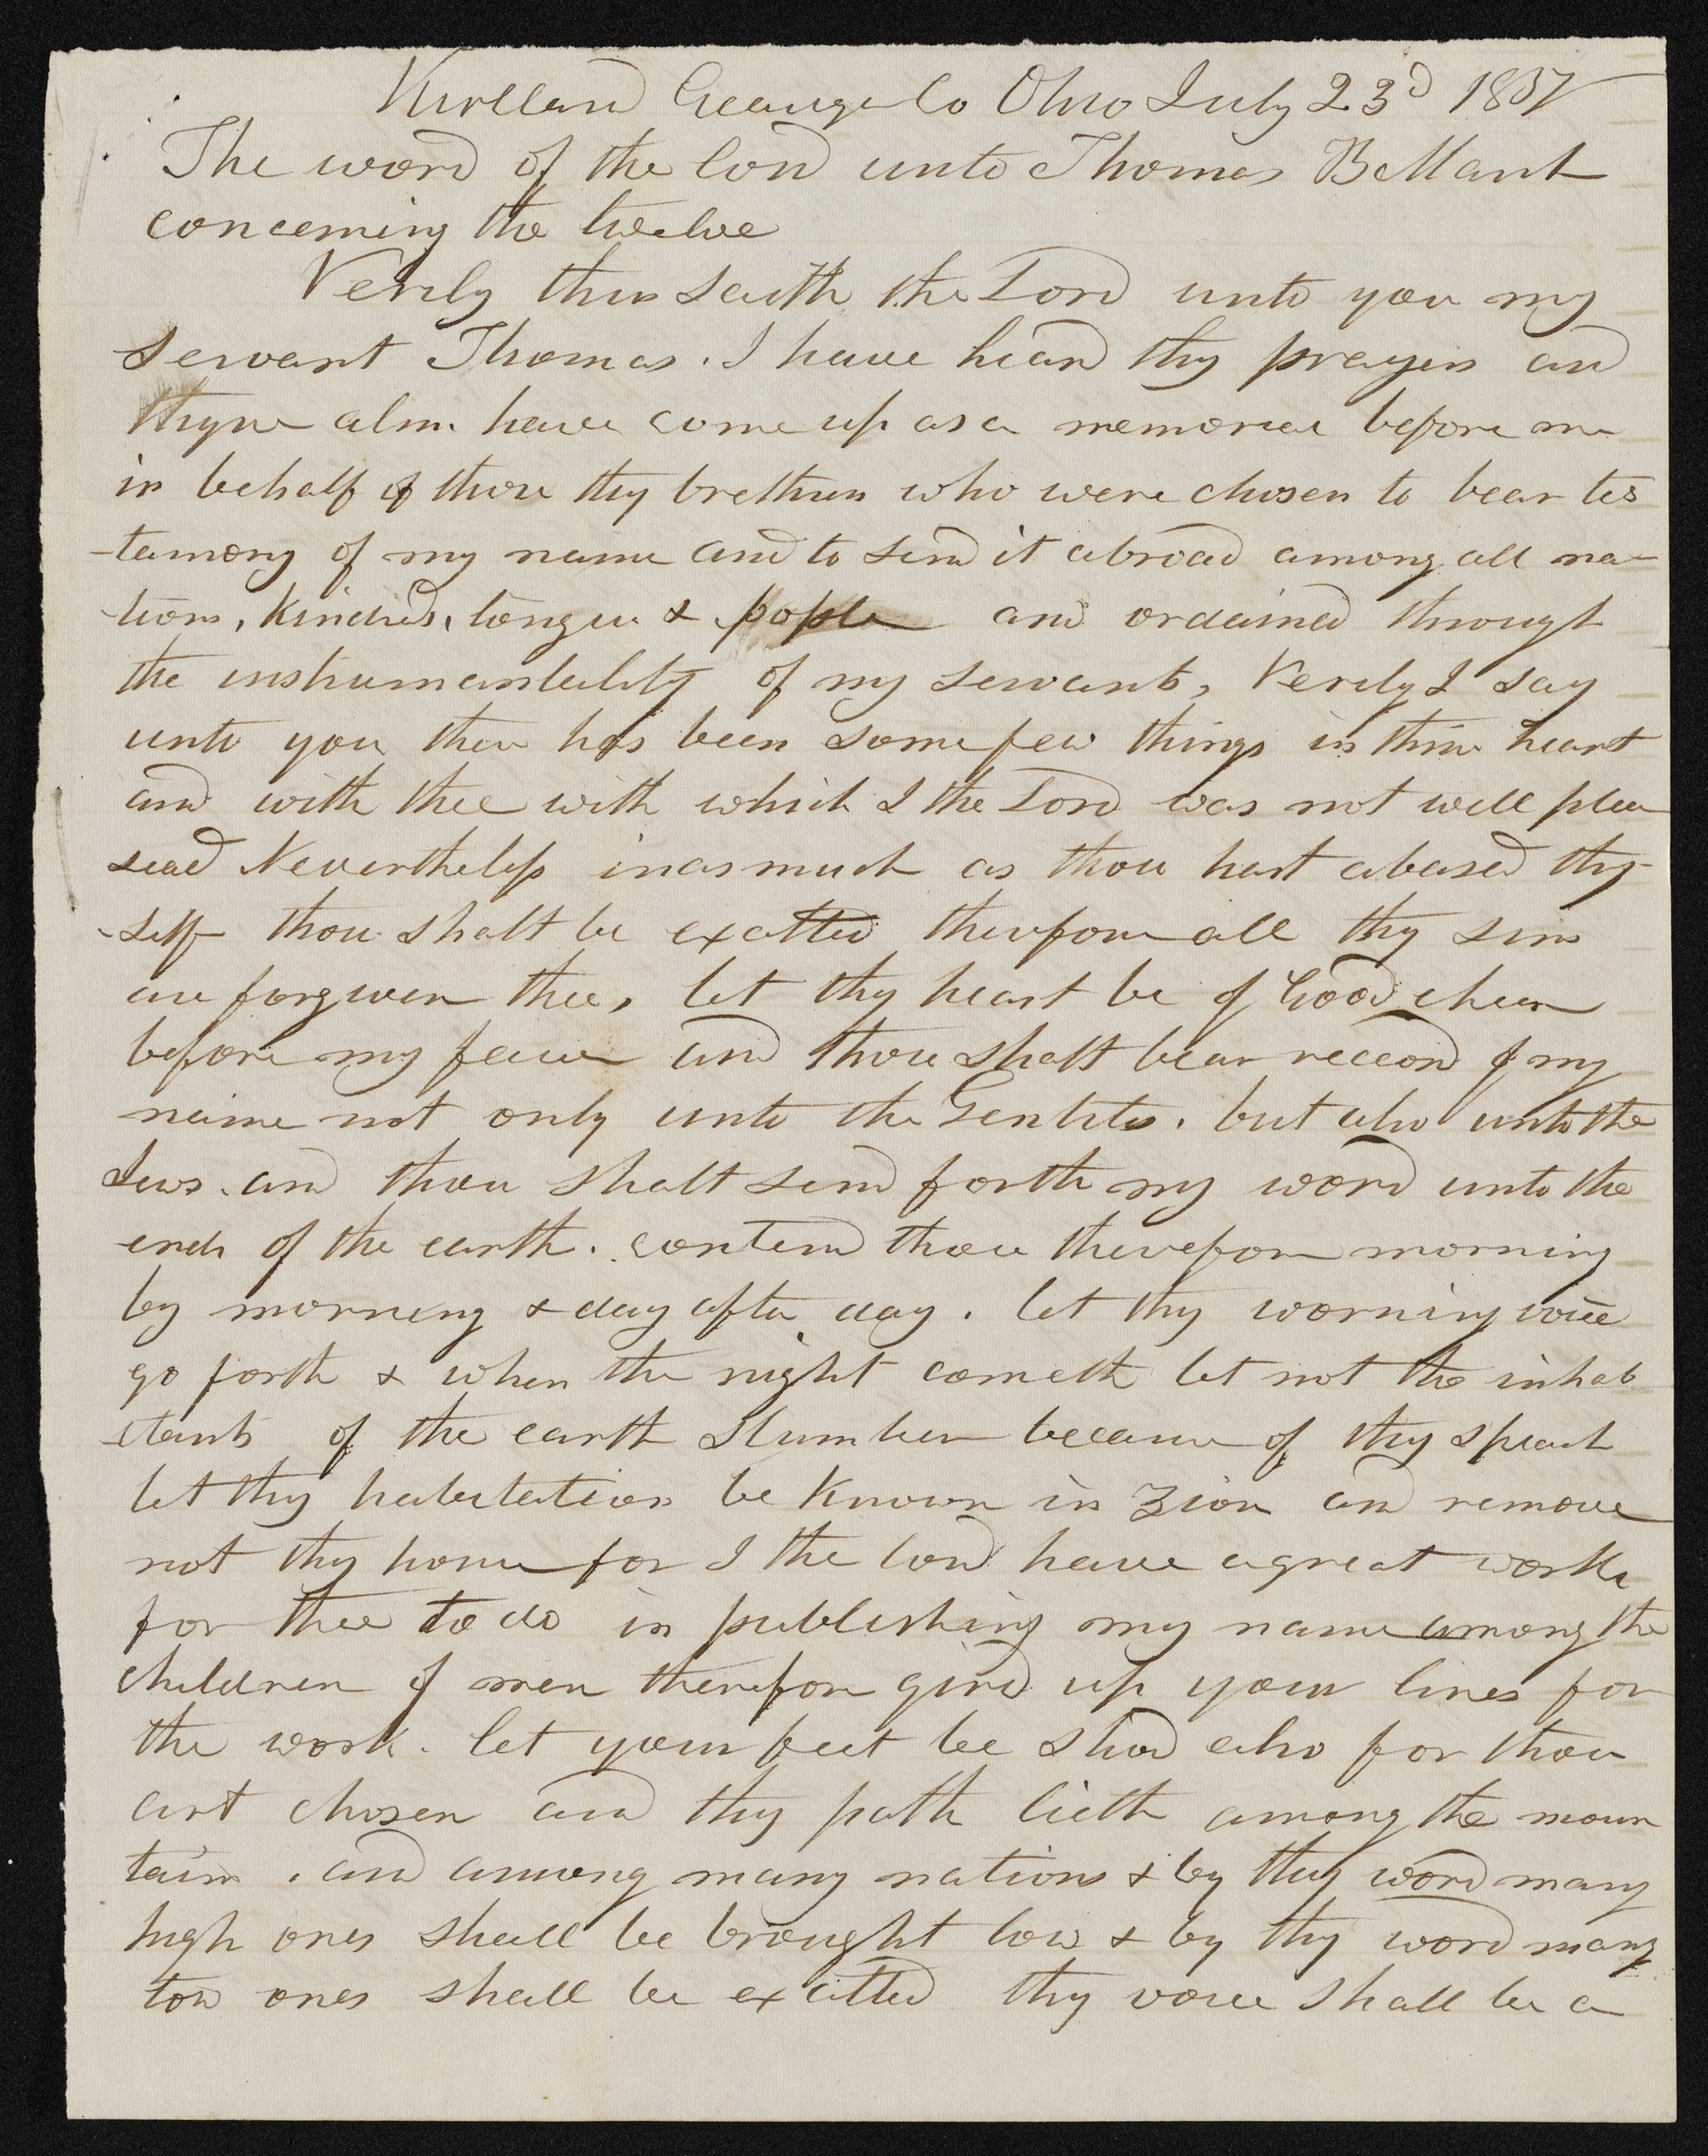 Kirtland Geauga Co Ohio July 23d 1837
The word of the Lord unto Thomas B Marsh
concerning the twelve
Verily thus saith the Lord unto you my
servant Thomas. I have heard thy prayers and
thyne alms have come up as a memorial before me
in behalf of those thy brethren who were chosen to bear tes
-tamony of my name and to send it abroad among all na-
-tions, kindreds, tongues & pople and ordained through
the instrumentality of my servants, Verily I say
unto you there has been some few things in thine heart
and with thee with which I the Lord was not well plea
sead Nevertheless inasmuch as thou hast abased thy-
-self thou shalt be exalted therefore all thy sins
are forgiven thee, let thy heart be of Good cheer
before my face and thou shalt bear record of my
name not only unto the Gentiles. but also unto the
Jews. and thou shalt send forth my word unto the
ends of the earth. contend thou therefore morning
by morning & day after day. let thy worning voice
go forth & when the night cometh let not the inhab
-itants of the earth slumber because of thy speach
let thy habitation be known in Zion and remove
not thy house for I the Lord have a great work
for thee to do in publishing my name among the
children of men therefore gird up your lines for
the work. let your feet be shod also for thou
art chosen and thy path lieth among the moun
tains. and among many nations & by thy word many
high ones shall be brought low & by thy word many
low ones shall be exalted thy voice shall be a